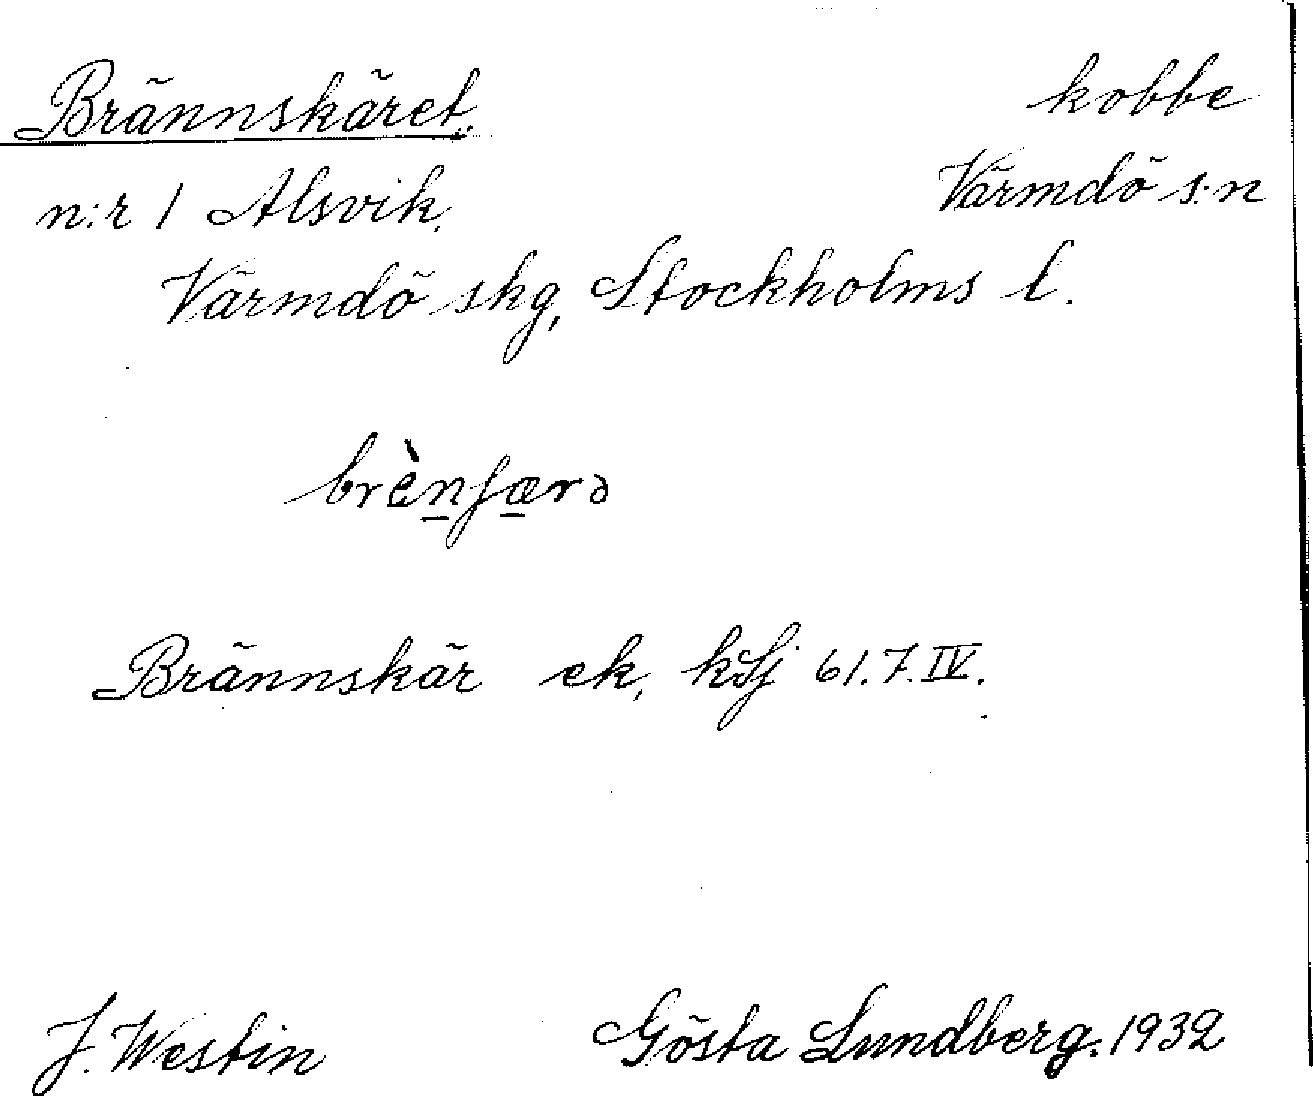 Brännskäret. kobbe
n:r 1 Alsvik. Värmdö s:n
Värmdö skg, Stockholms l.
brènʃærə
Brännskär ek, kSj 61.7.IV.
J. Westin Gösta Lundberg. 1932